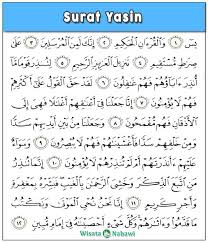 Surat Yasin
يسٓ ١ وَٱلْقُرْءَانِ ٱلْحَكِيمِ ٢ إِنَّكَ لَمِنَ ٱلْمُرْسَلِينَ ٣ عَلَىٰ
صِرَٰطٍ مُّسْتَقِيمٍ ٤ تَنزِيلَ ٱلْعَزِيزِ ٱلرَّحِيمِ ٥ لِتُنذِرَ قَوْمًا مَّآ
أُنذِرَ ءَابَآؤُهُمْ فَهُمْ غَٰفِلُونَ ٦ لَقَدْ حَقَّ ٱلْقَوْلُ عَلَىٰٓ أَكْثَرِهِمْ
فَهُمْ لَا يُؤْمِنُونَ ٧ إِنَّا جَعَلْنَا فِىٓ أَعْنَٰقِهِمْ أَغْلَٰلًا فَهِىَ إِلَى
ٱلْأَذْقَانِ فَهُم مُّقْمَحُونَ ٨ وَجَعَلْنَا مِنۢ بَيْنِ أَيْدِيهِمْ سَدًّا
وَمِنْ خَلْفِهِمْ سَدًّا فَأَغْشَيْنَٰهُمْ فَهُمْ لَا يُبْصِرُونَ ٩ وَسَوَآءٌ
عَلَيْهِمْ ءَأَنذَرْتَهُمْ أَمْ لَمْ تُنذِرْهُمْ لَا يُؤْمِنُونَ ١٠ إِنَّمَا تُنذِرُ
مَنِ ٱتَّبَعَ ٱلذِّكْرَ وَخَشِىَ ٱلرَّحْمَٰنَ بِٱلْغَيْبِ فَبَشِّرْهُ بِمَغْفِرَةٍ
وَأَجْرٍ كَرِيمٍ ١١ إِنَّا نَحْنُ نُحْىِ ٱلْمَوْتَىٰ وَنَكْتُبُ
مَا قَدَّمُوا۟ وَءَاثَٰرَهُمْ وَكُلَّ شَىْءٍ أَحْصَيْنَٰهُ فِىٓ إِمَامٍ مُّبِينٍ ١٢
Wisata Nabawi